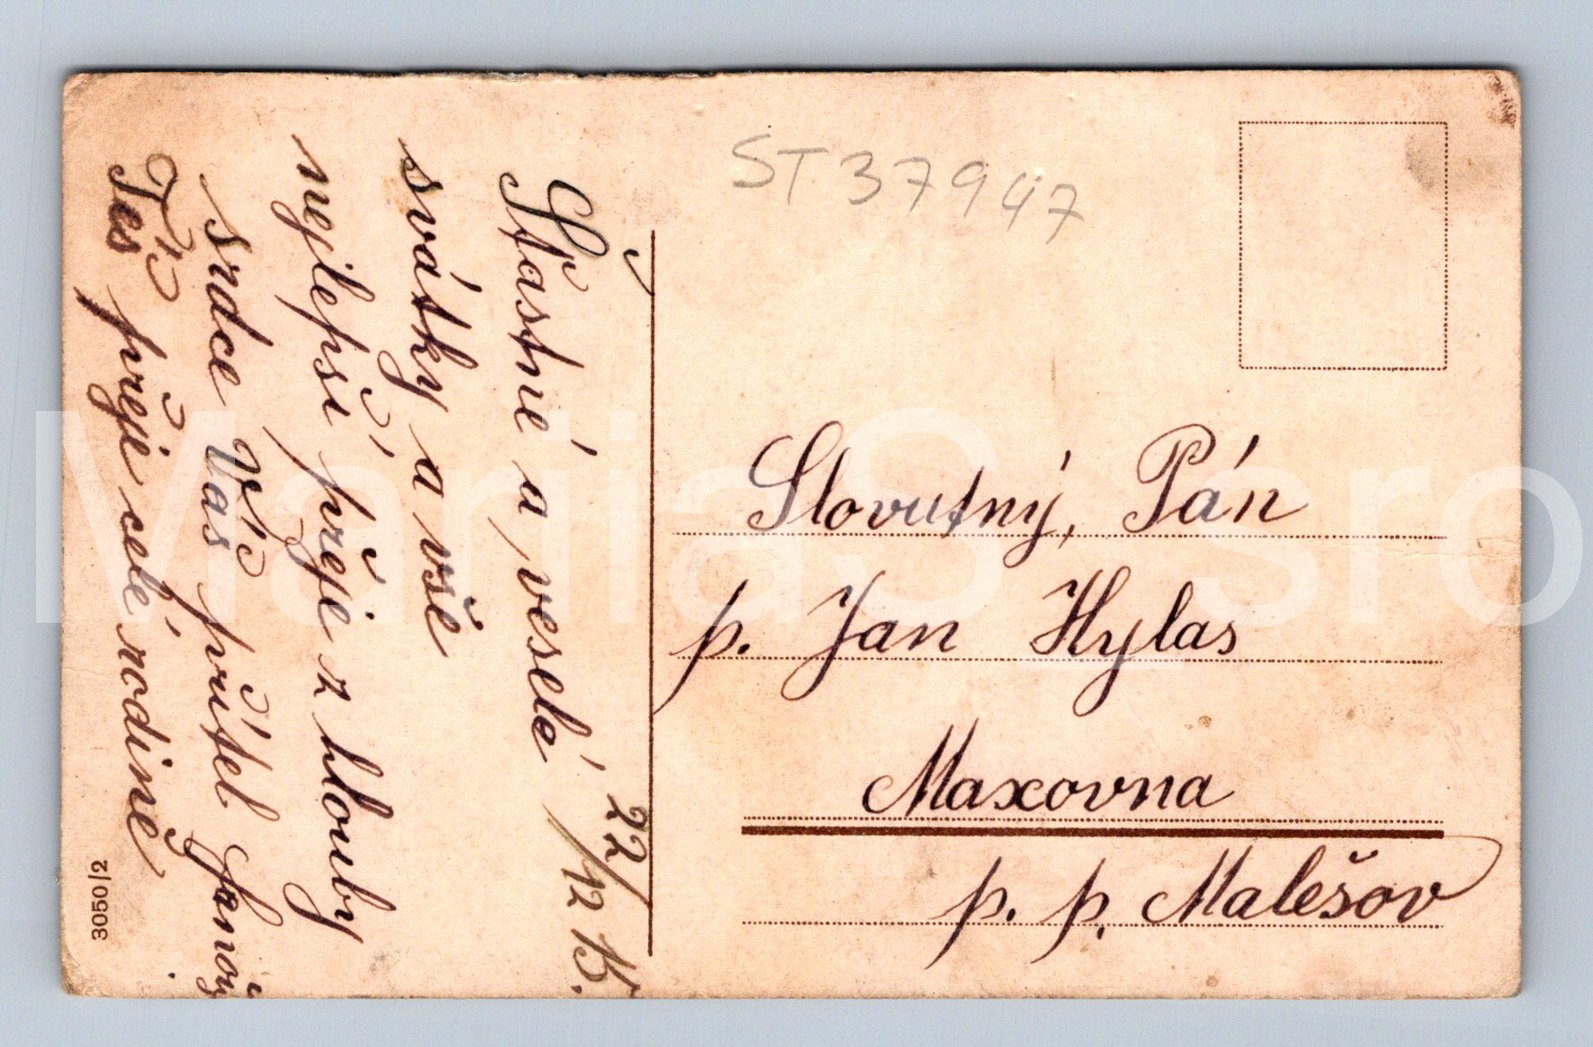 ST 37947
22/12 15.
Šťastné a veselé
svátky a vše
nejlepší přeje z hlouby
srdce Váš přítel
Též přeji celé rodině
3050/2
Slovutný, Pán
p. Jan Hylas
Maxovna
p. p. Malešov
MariaS_sro